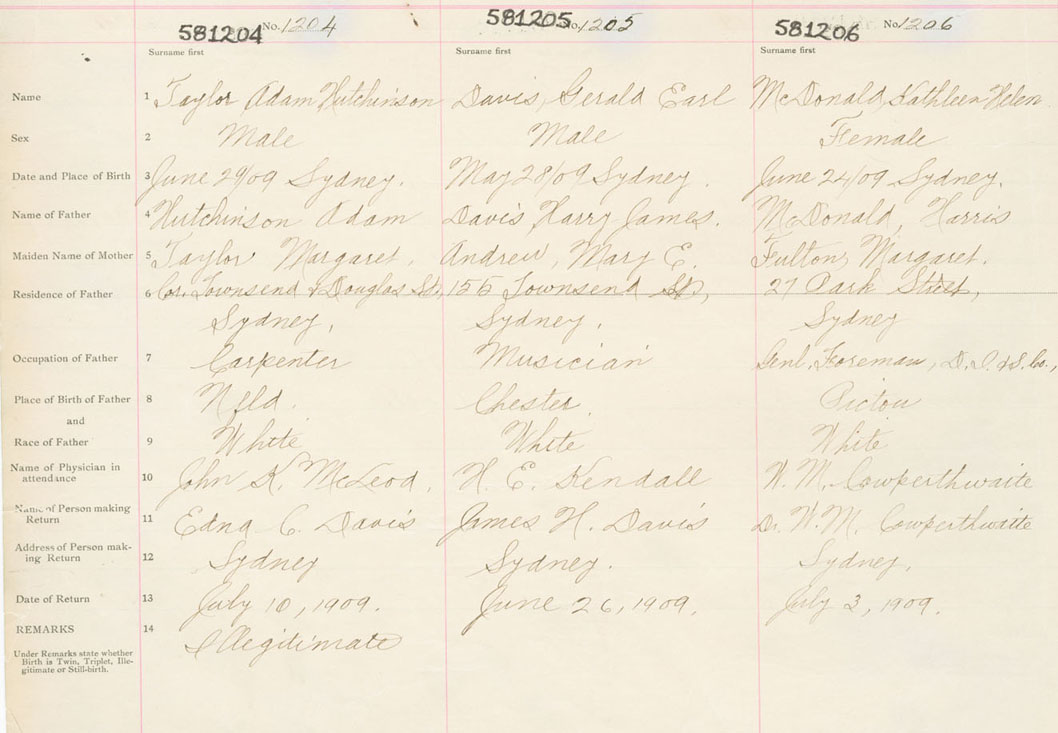 581204 No. 1204 581205 No. 1205 581206 No. 1206
Surname first Surname first Surname first
Name 1 Taylor Adam Hutchinson Davis, Gerald Earl McDonald, Kathleen Helen
Sex 2 Male Male Female
Date and Place of Birth 3 June 29/09 Sydney. May 28/09 Sydney. June 24/09 Sydney.
Name of Father 4 Hutchinson Adam Davis, Harry James. McDonald, Harris
Maiden Name of Mother 5 Taylor Margaret. Andrew, Mary E. Fulton, Margaret.
Residence of Father 6 Cor. Townsend & Douglas Sts, 155 Townsend St, 27 Park Street,
Sydney. Sydney. Sydney
Occupation of Father 7 Carpenter Musician Genl. Foreman, D. I. & S. Co.,
Place of Birth of Father 8 Nfld. Chester. Pictou
and
Race of Father 9 White White White
Name of Physician in
attendance 10 John K. McLeod. H. E. Kendall W. M. Cowperthwaite
Name of Person making
Return 11 Edna C. Davis James H. Davis Dr. W. M. Cowperthwaite
Address of Person mak-
ing Return 12 Sydney Sydney. Sydney.
Date of Return 13 July 10, 1909. June 26, 1909. July 3, 1909.
REMARKS 14 Illegitimate
Under Remarks state whether
Birth is Twin, Triplet, Ille-
gitimate or Still-birth.